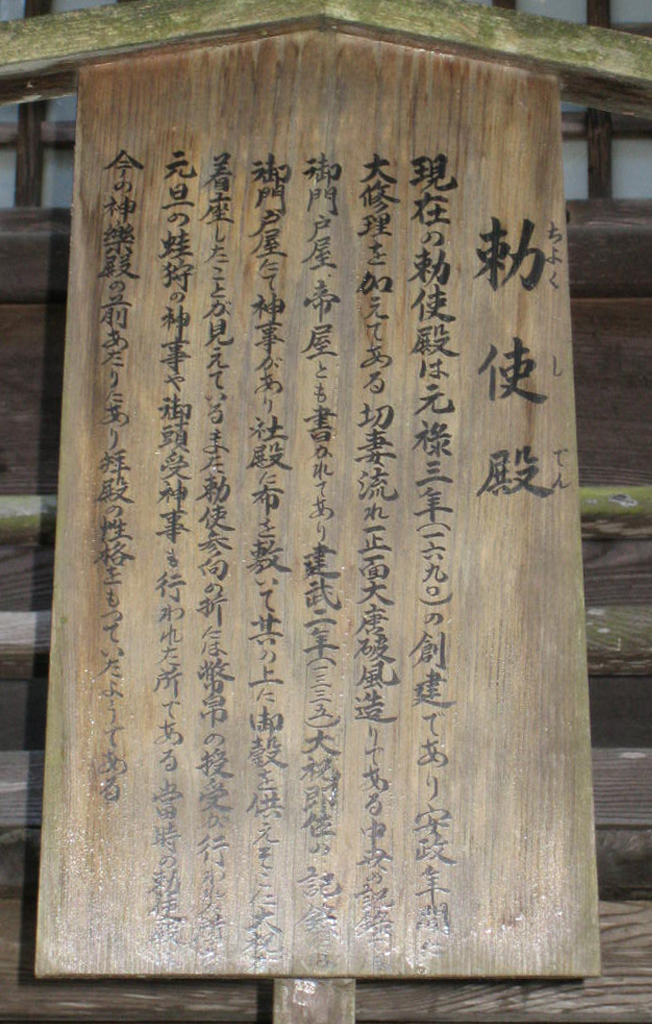 勅使殿
ちよくしでん
現在の勅使殿は元禄三年(一六九〇)の創建であり安政年間に
大修理を加えてある切妻流れ正面大唐破風造りである中世の記録には
御門戸屋、帝屋とも書かれてあり建武二年(一三三五)大祝即位の記録には
御門戸屋にて神事があり社殿に布を敷いて其の上に御穀を供えそこに大祝が
着座したことが見えているまた勅使参向の折には幣帛の授受が行われ
元旦の蛙狩の神事や御頭受神事も行われた所である当時の勅使殿は
今の神樂殿の前あたりにあり拝殿の性格をもっていたようである